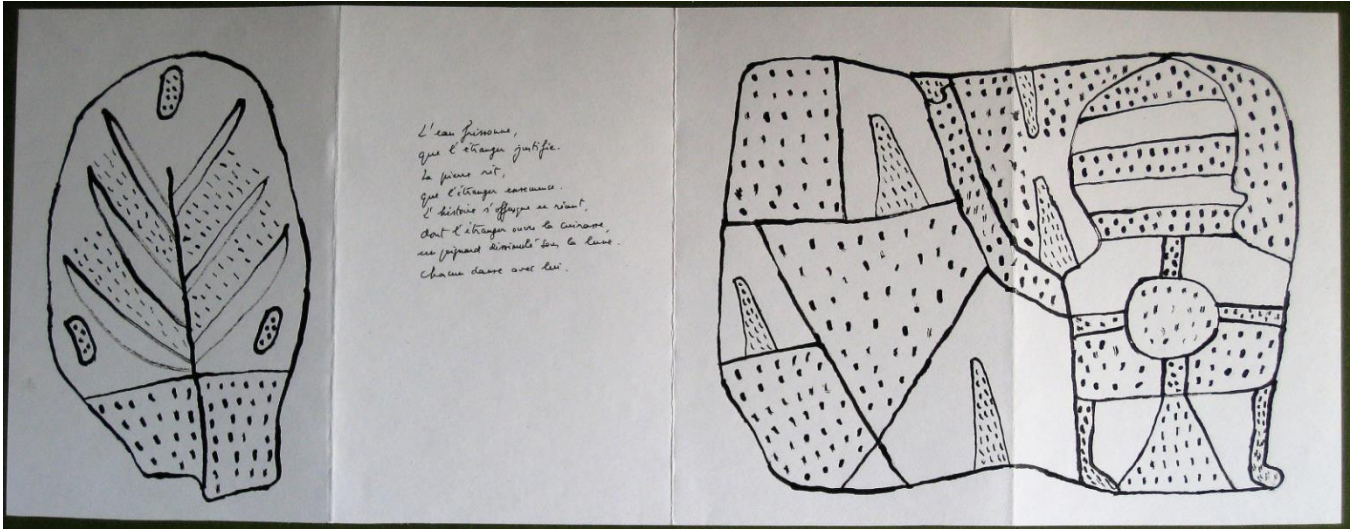 L'eau frissonne,
que l'étranger justifie.
La pierre rit,
que l'étranger ensemence.
L'histoire s'offusque en riant,
dont l'étranger ouvre la cuirasse,
un poignard dissimulé sous la lune.
Chacun danse avec lui.